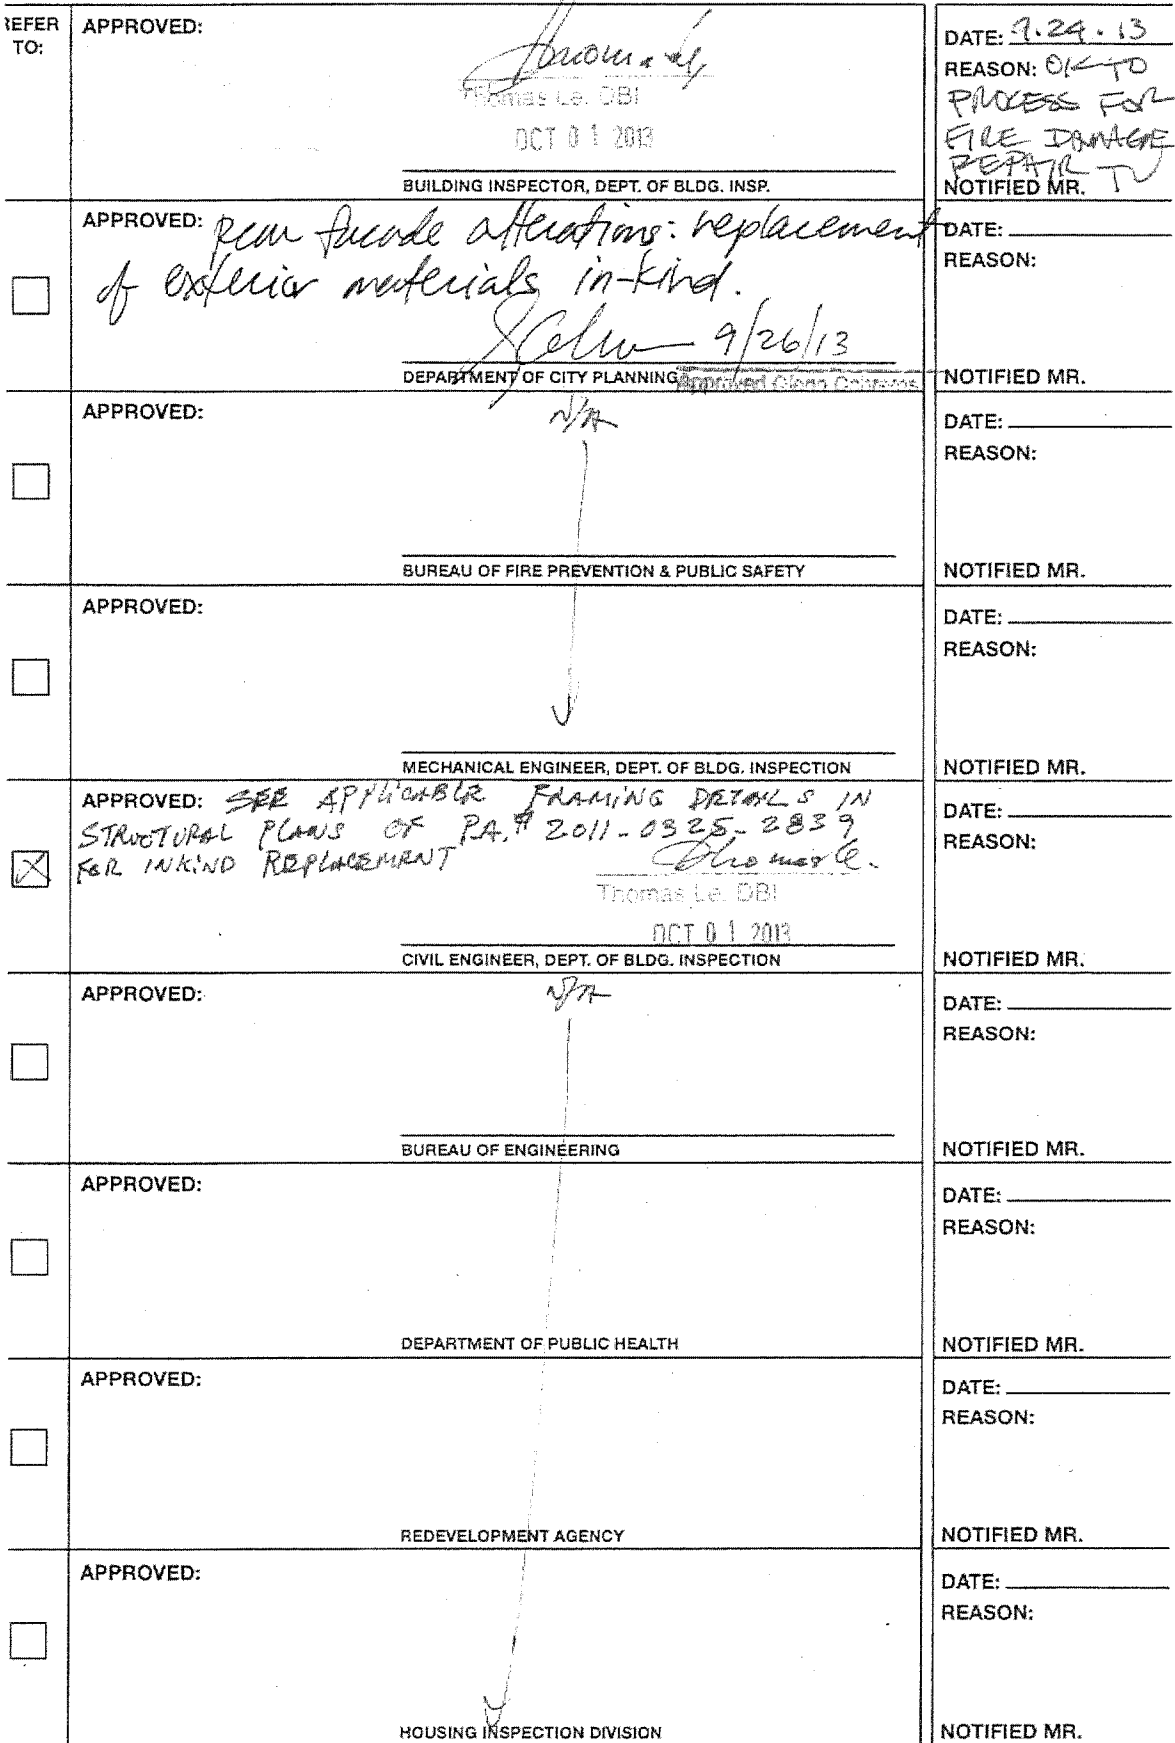 REFER
TO:
APPROVED:
Thomas Le, DBI
OCT 01 2013
BUILDING INSPECTOR, DEPT. OF BLDG. INSP.
DATE: 9.24.13
REASON: OK TO
PROCESS FOR
FIRE DAMAGE
REPAIR
NOTIFIED MR.
APPROVED: rear facade alterations: replacement
of exterior materials in-kind.
9/26/13
DEPARTMENT OF CITY PLANNING Approved Glenn
DATE:
REASON:
NOTIFIED MR.
APPROVED:
N/A
BUREAU OF FIRE PREVENTION & PUBLIC SAFETY
DATE:
REASON:
NOTIFIED MR.
APPROVED:
MECHANICAL ENGINEER, DEPT. OF BLDG. INSPECTION
DATE:
REASON:
NOTIFIED MR.
APPROVED: SEE APPLICABLE FRAMING DETAILS IN
STRUCTURAL PLANS OF P.A.# 2011-0325-2839
FOR INKIND REPLACEMENT
Thomas Le.
Thomas Le, DBI
OCT 01 2013
CIVIL ENGINEER, DEPT. OF BLDG. INSPECTION
DATE:
REASON:
NOTIFIED MR.
APPROVED:
N/A
BUREAU OF ENGINEERING
DATE:
REASON:
NOTIFIED MR.
APPROVED:
DEPARTMENT OF PUBLIC HEALTH
DATE:
REASON:
NOTIFIED MR.
APPROVED:
REDEVELOPMENT AGENCY
DATE:
REASON:
NOTIFIED MR.
APPROVED:
HOUSING INSPECTION DIVISION
DATE:
REASON:
NOTIFIED MR.